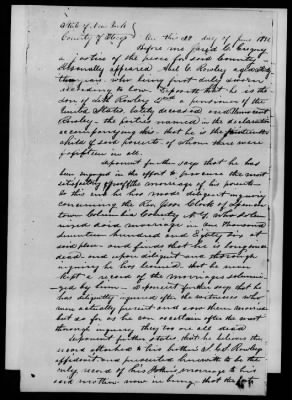 State of New York
County of Otsego On this 22 day of June 1852
Before me Jared C. Gregory
a justice of the peace for said County
personally appeared Abel C. Rowley aged
years who being first duly sworn
according to law. Deposeth that he is the
son of Seth Rowley a pensioner of the
United States lately deceased and
Rowley the parties named in the declaration
accompanying this that he is the
child of said parents of whom there were
in all.
deponent further says that he has
been engaged in the effort to procure the most
satisfactory of the marriage of his parents
to this end he has made diligent inquiry
concerning the Rev. Clark of
town Columbia County N.Y. Who solem
nized said marriage in One thousand
seventeen hundred and Eighty six at
said place and finds that he is long since
dead and upon diligent and thorough
inquiry he has learned that he never
kept a record of the marriages solemni-
zed by him deponent further says that he
has diligently inquired after the witnesses who
were actually present and saw them married
but so far as he can ascertain after the most
thorough inquiry they too are all dead
deponent further states that he believes the
record attached to his brothers Rowleys
affidavit and presented herewith to be the
only record of his Fathers marriage to his
said mother now in being that the